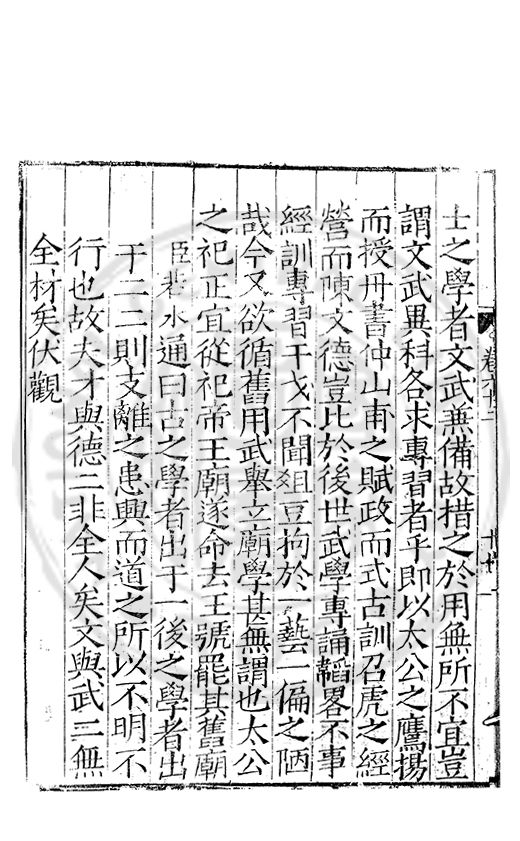 士之學者文武兼備故措之於用無所不宜豈
謂文武異科各求專習者乎即以太公之鷹揚
而授丹書仲山甫之賦政而式古訓召虎之經
營而陳文德豈比於後世武學專誦韜畧不事
經訓專習干戈不聞俎豆拘於一藝一偏之陋
哉今又欲循舊用武舉立廟學甚無謂也太公
之祀正宜從祀帝王廟遂命去王號罷其舊廟
臣若水通曰古之學者出于一後之學者出
于二二則支離之患興而道之所以不明不
行也故夫才與德二非全人矣文與武二無
全材矣伏觀